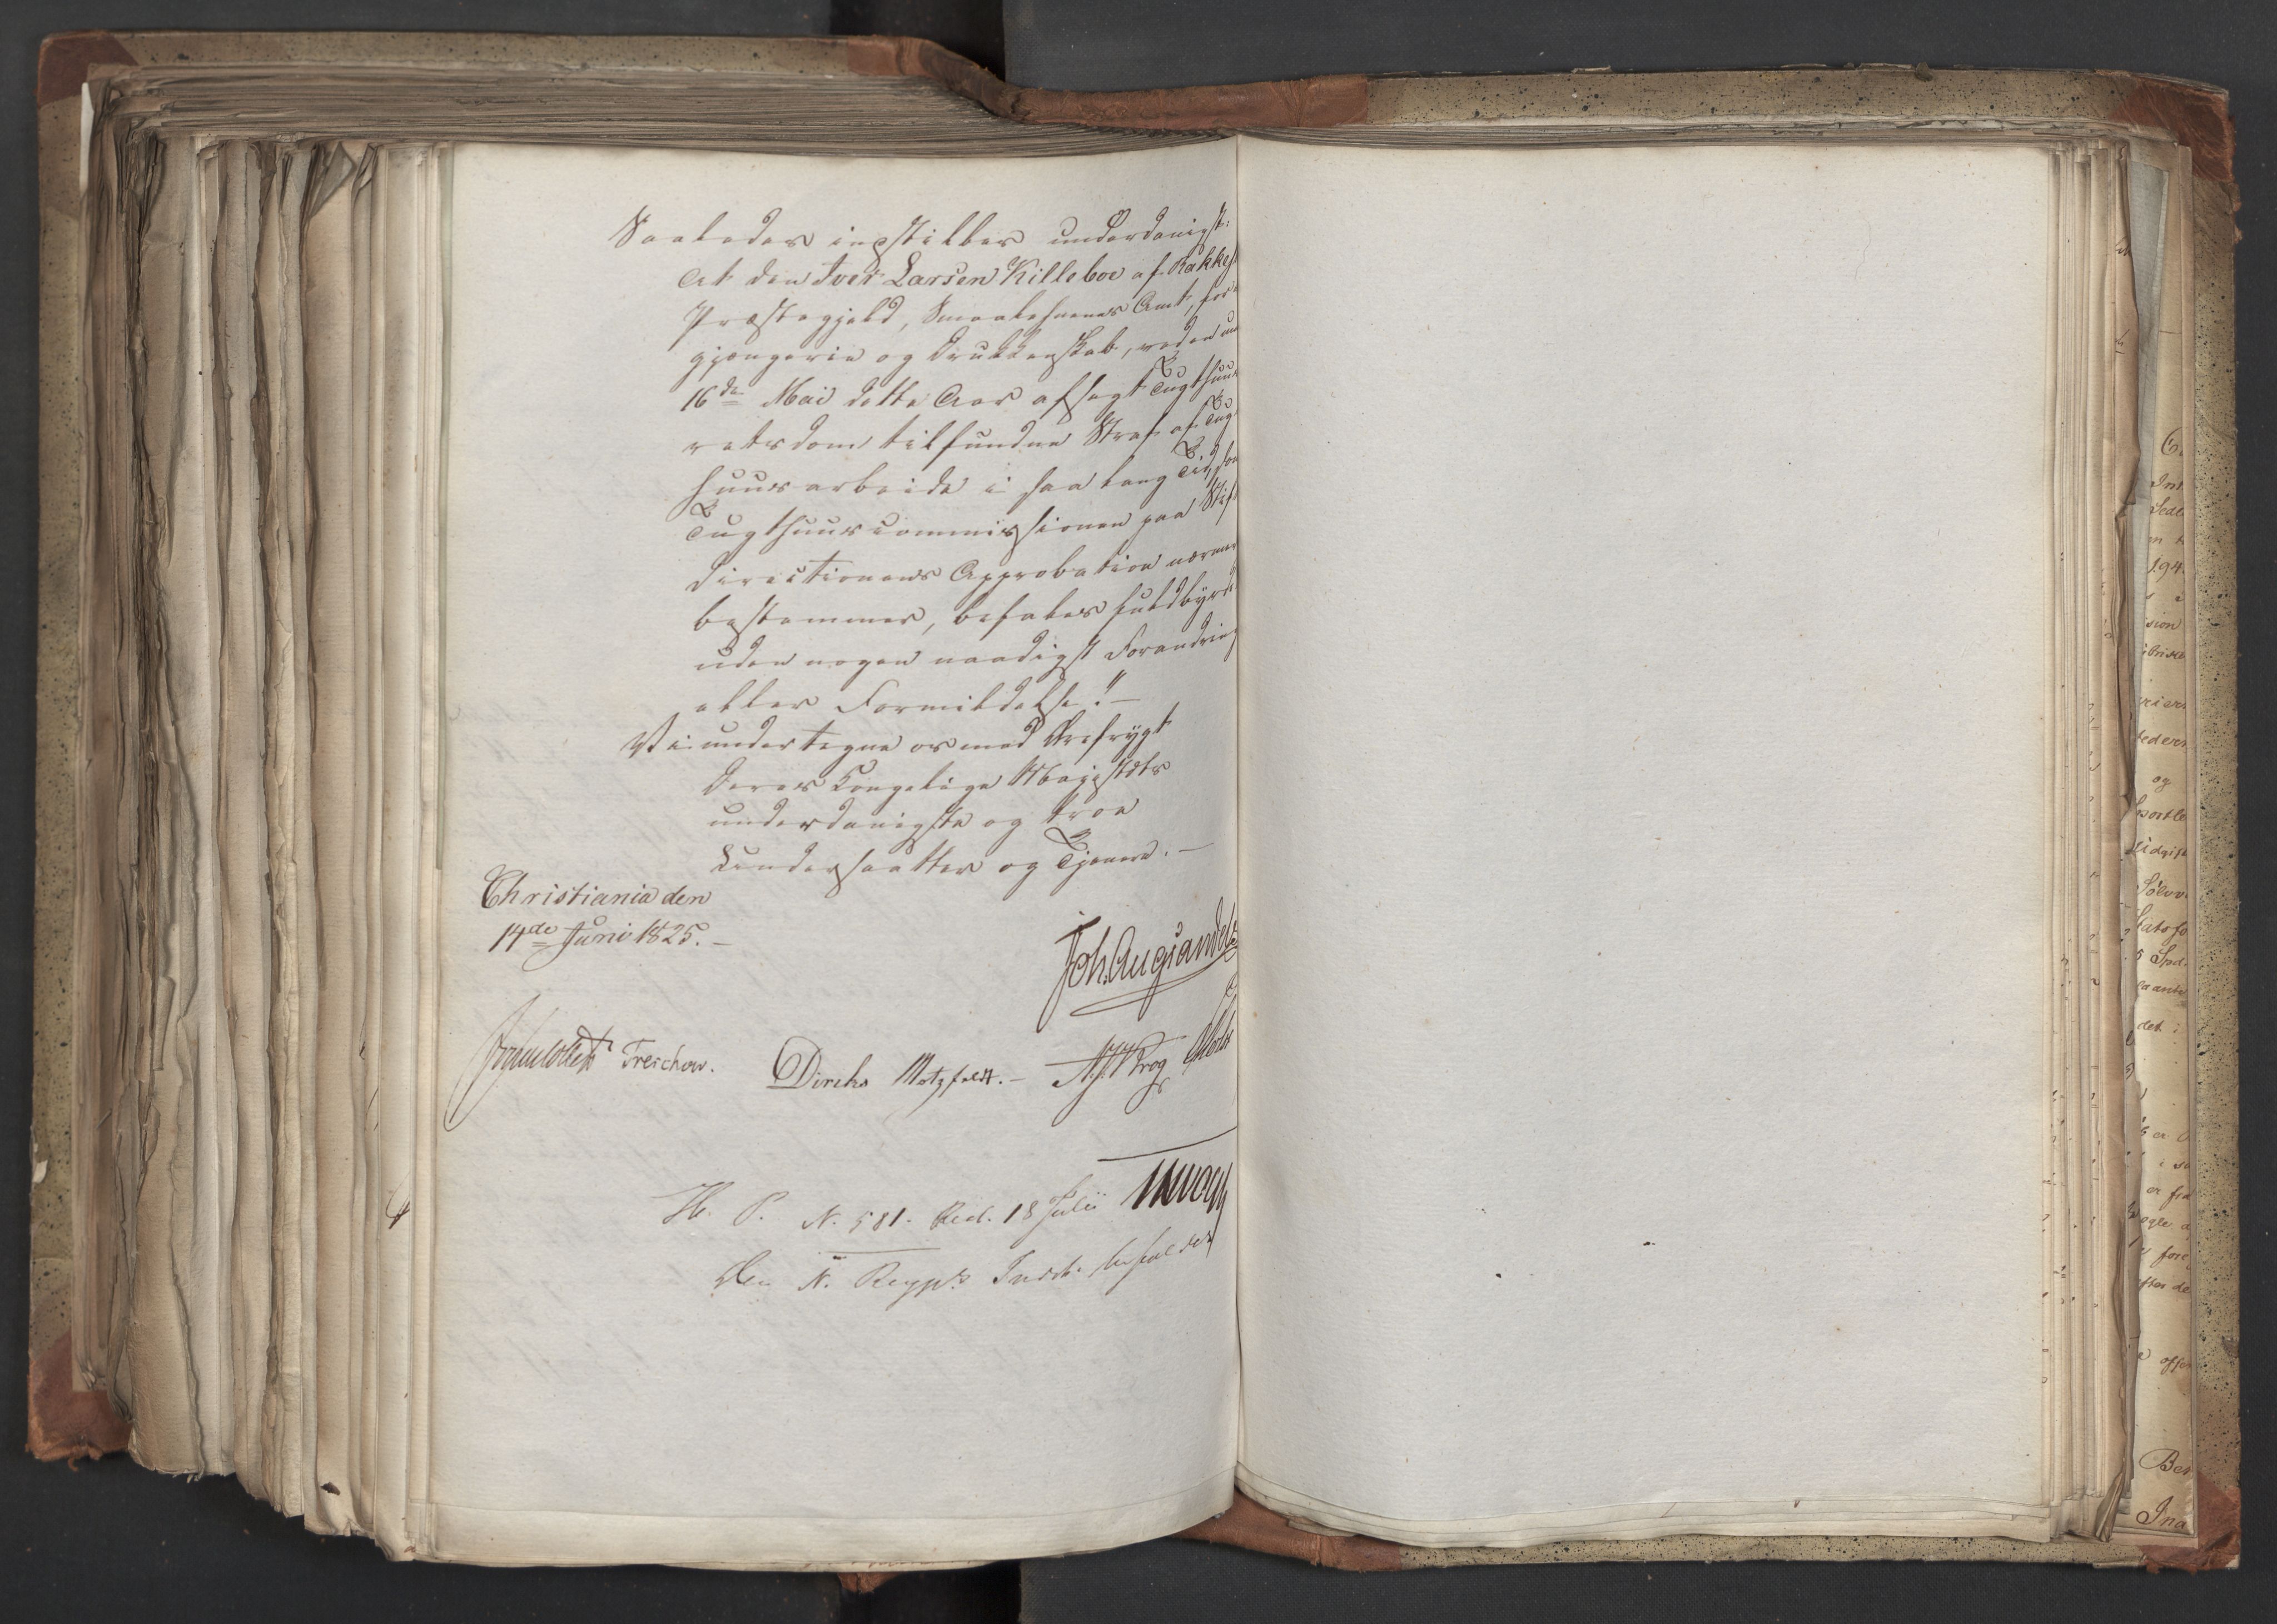 Saaledes indstilles underdanigst:
At den Iver Larsen Killeboe af Rakke
Præstegjeld, Smaalehnenes Amt, for
gjængerie og Drukkenskab, ved en und
16de Mai dette Aar afsagt Tugthuus
retsdom tilfundne Straf af Tugt
huusarbeide i saa lang Tid, som
Tugthuuscommissionen paa Stifts
directionens Approbation nærmer
bestemmer, befales fuldbyrdet
uden nogen naadigst Forandring
eller Formildelse."—
Vi undertegne os med Ærefrygt
Deres Kongelige Majestæts
underdanigste og troe
Undersaatter og Tjenere.—
Christiania den
14de Juni 1825.—
Joh. Aug. Sandels
Jonas Collett Treschow. Diriks Motzfeldt.— A. J. Krog Holst
H. P. N. 581. Red. 18 Julii
Den N. Regjs Indst. befaldes